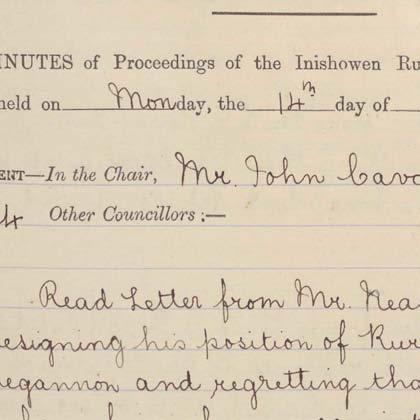 INUTES of Proceedings of the Inishowen Ru
held on Monday, the 14th day of
ENT—In the Chair, Mr. John Cavo
4 Other Councillors :—
Read Letter from Mr. Nea
esigning his position of Rur
egannon and regretting tha